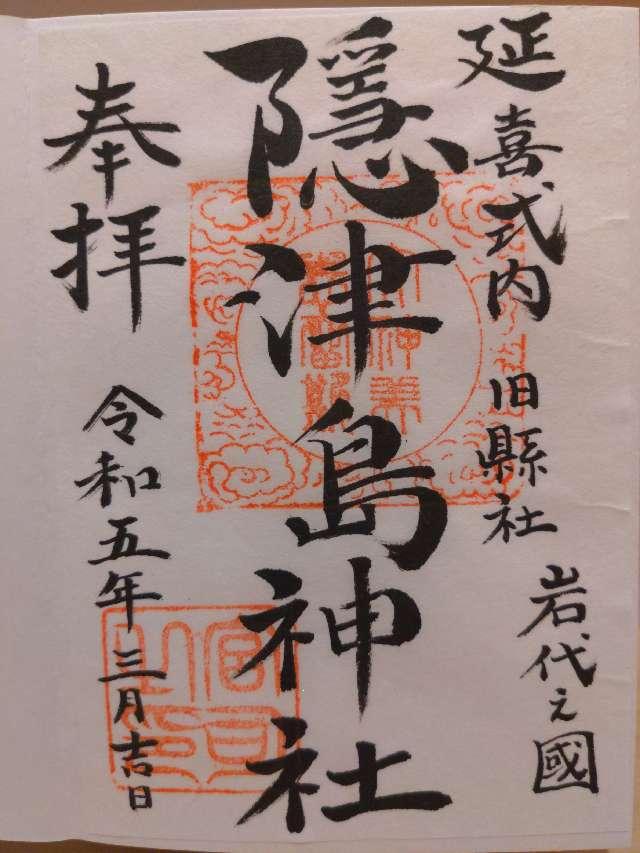 延喜式内 旧縣社 岩代之國
隱津島神社
奉拝
令和五年三月吉日
宮司之印